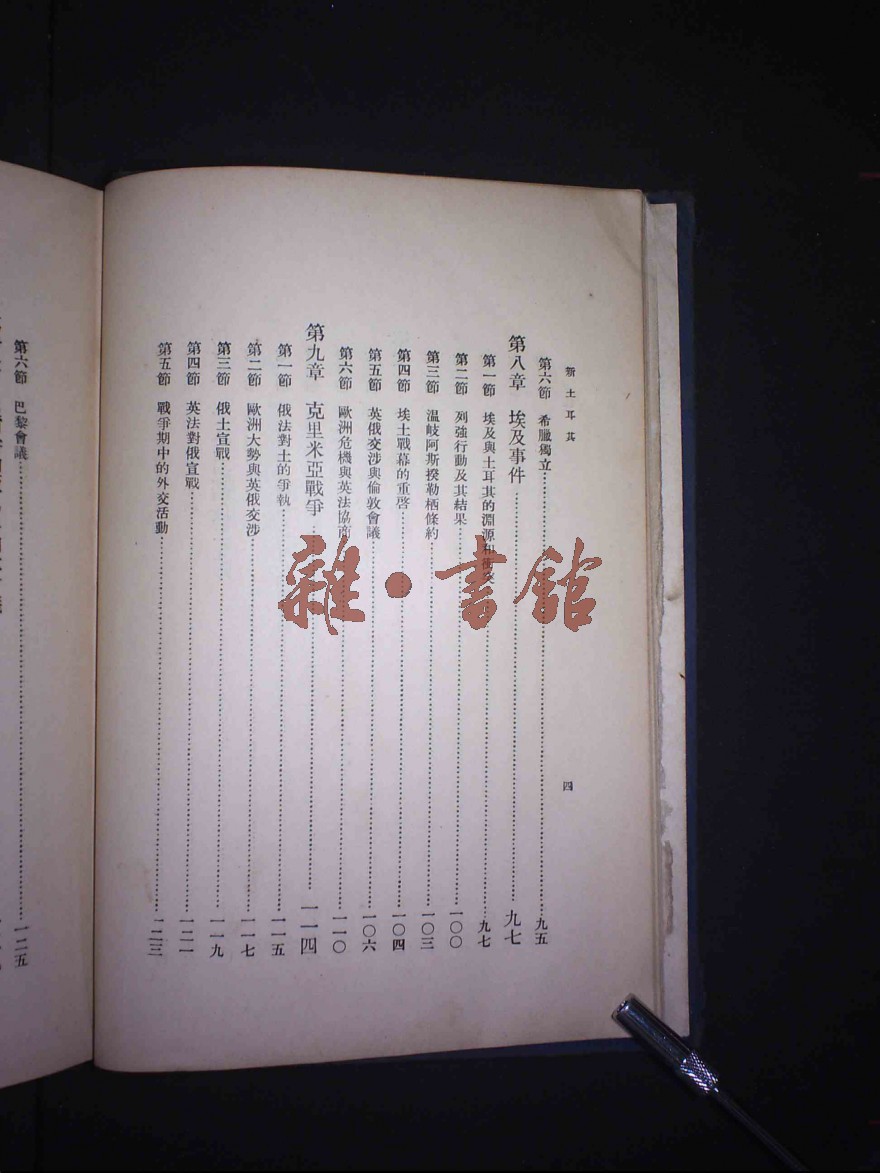 新土耳其
四
第六節 希臘獨立 九五
第八章 埃及事件 九七
第一節 埃及與土耳其的淵源和衝突 九七
第二節 列強行動及其結果 一〇〇
第三節 溫岐阿斯揆勒栖條約 一〇三
第四節 埃土戰幕的重啓 一〇四
第五節 英俄交涉與倫敦會議 一〇六
第六節 歐洲危機與英法協商 一一〇
第九章 克里米亞戰爭 一一四
第一節 俄法對土的爭執 一一五
第二節 歐洲大勢與英俄交涉 一一七
第三節 俄土宣戰 一一九
第四節 英法對俄宣戰 一二一
第五節 戰爭期中的外交活動 一二三
第六節 巴黎會議 一二五
雜·書館